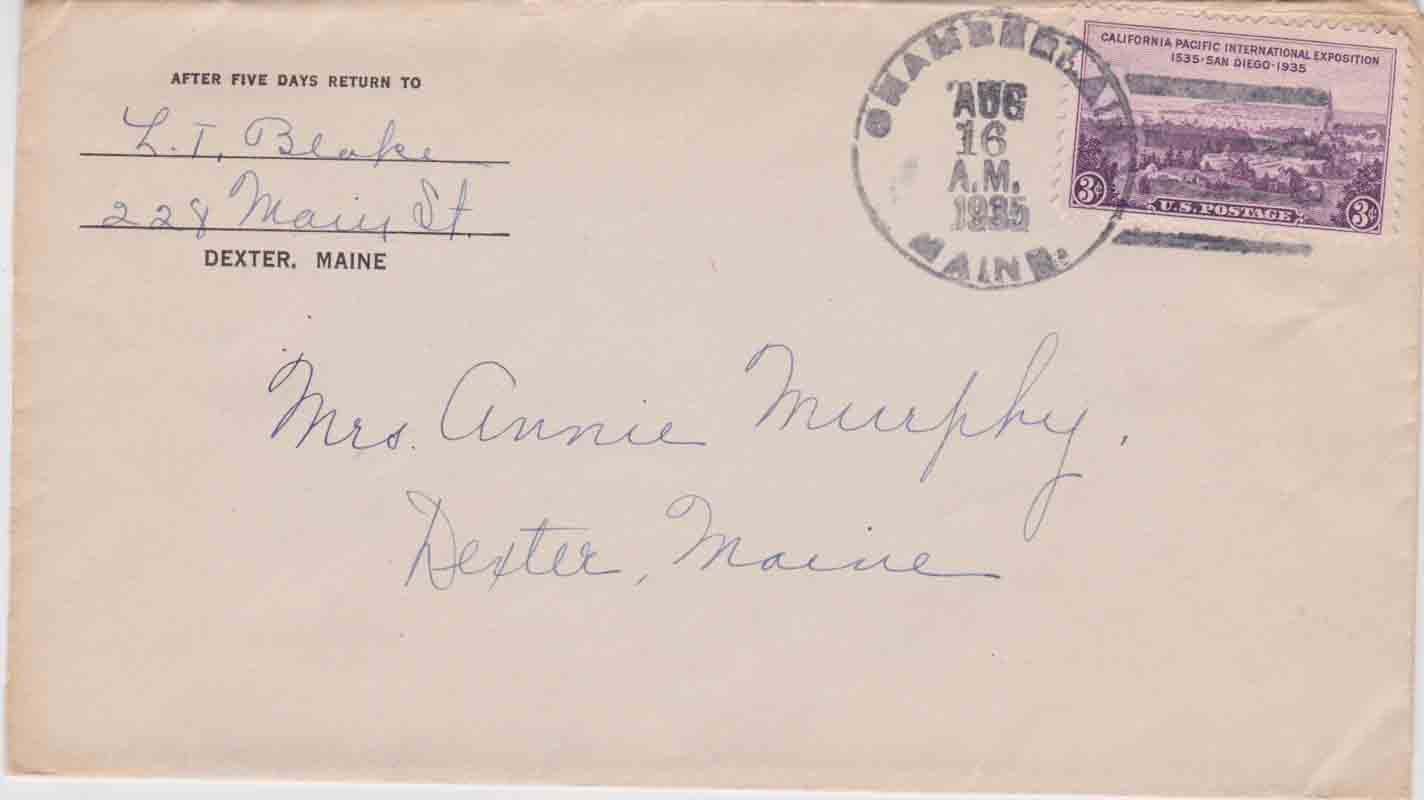 AFTER FIVE DAYS RETURN TO
L. T. Blake
228 Main St.
DEXTER, MAINE
AUG
16
A.M.
1935
MAINE.
CALIFORNIA PACIFIC INTERNATIONAL EXPOSITION
1535·SAN DIEGO·1935
3¢ U.S. POSTAGE 3¢
Mrs. Annie Murphy,
Dexter, Maine